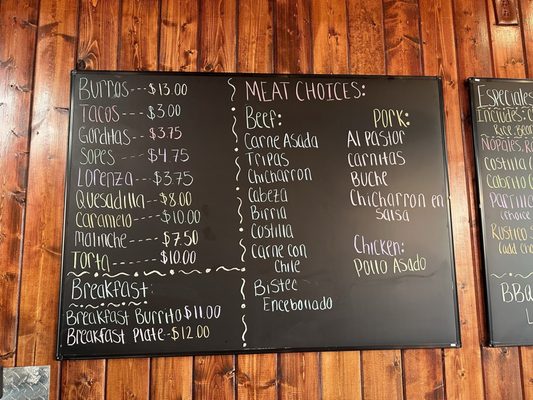 Burros---$13.00
Tacos----$3.00
Gorditas---$3.75
Sopes----$4.75
Lorenza---$3.75
Quesadilla--$8.00
Caramelo----$10.00
Malinche----$7.50
Torta----$10.00
Breakfast:
Breakfast Burrito $11.00
Breakfast Plate--$12.00
MEAT CHOICES:
Beef:
Carne Asada
Tripas
Chicharron
Cabeza
Birria
Costilla
Carne con
Chile
Bistec
Encebollado
Pork:
Al Pastor
Carnitas
Buche
Chicharron en
Salsa
Chicken:
Pollo Asado
Especiales
Includes:
Rice
Nopales,
Costilla
Cabrito
Parrill
choice
Rustico